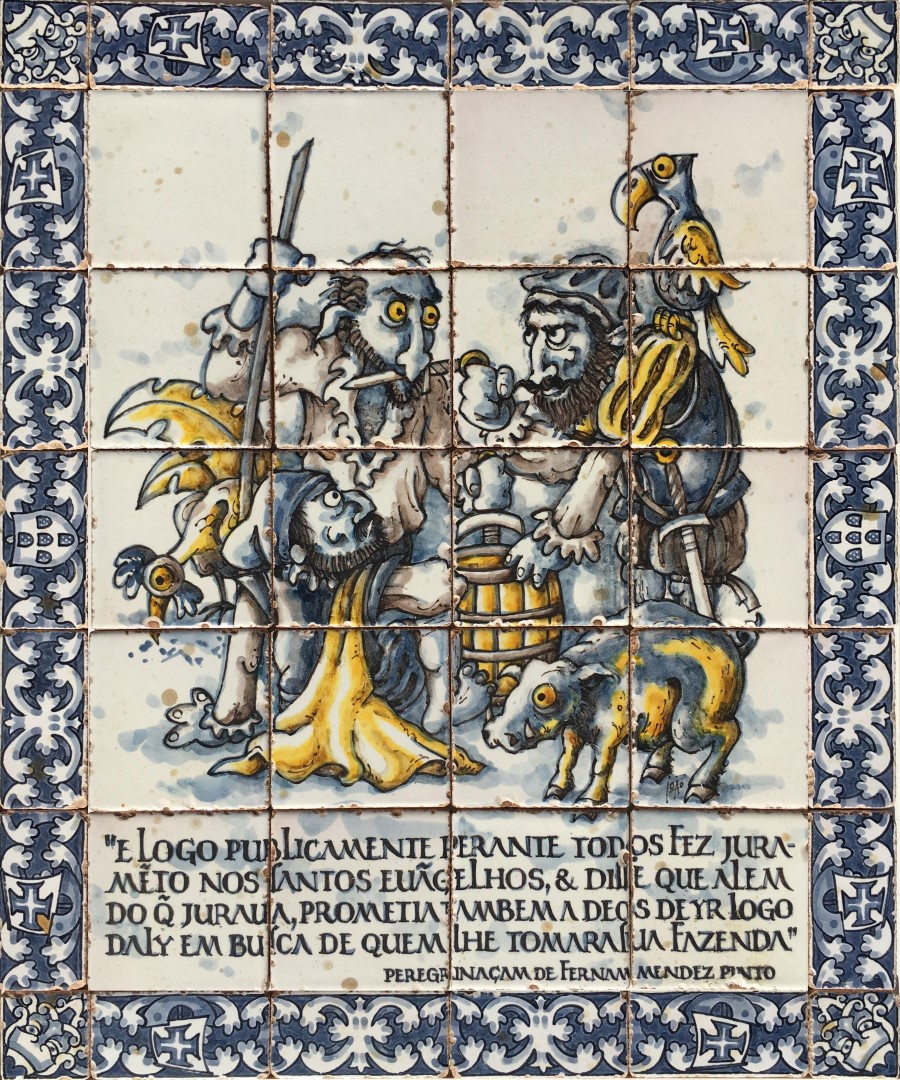 "E LOGO PUBLICAMENTE PERANTE TODOS FEZ JURA-
MẼTO NOS SANTOS EUÃGELHOS, & DISSE QUE ALEM
DO Q̃ JURAUA, PROMETIA TAMBEM A DEOS DE YR LOGO
DALY EM BUSCA DE QUEM LHE TOMARA SUA FAZENDA"
PEREGRINAÇAM DE FERNAM MENDEZ PINTO